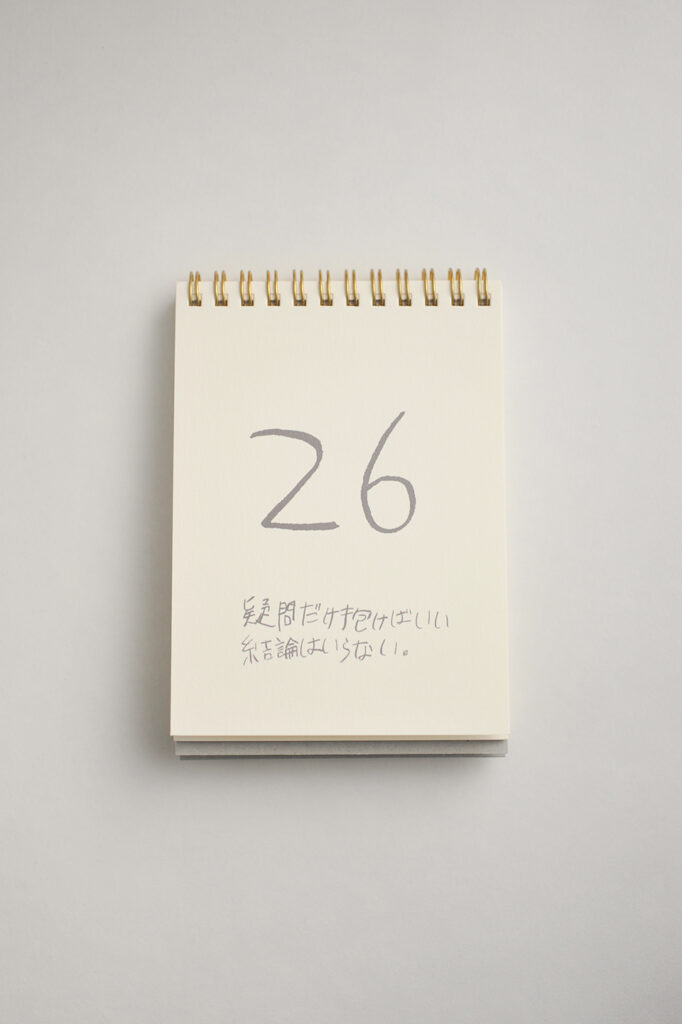 26
疑問だけ抱けばいい
結論はいらない。